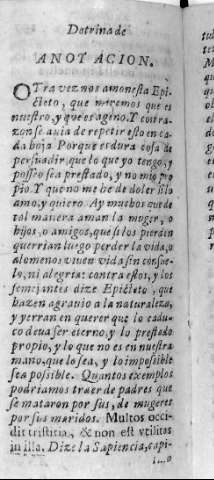 Dotrina de
ANOTACION.
OTra vez nos amonesta Epi-
cteto, que miremos que es
nuestro, y que es ageno. Y con ra-
zon se auia de repetir esto en ca-
da hoja Porque es dura cosa de
persuadir, que lo que yo tengo, y
posseo sea prestado, y no mio pro
pio. Y que no me he de doler si lo
amo, y quiero. Ay muchos que de
tal manera aman la muger, o
hijos, o amigos, que si los pierden
querrian luego perder la vida, o
alomenos viuen vida sin consue-
lo, ni alegria: contra estos, y los
semejantes dize Epicteto, que
hazen agrauio a la naturaleza,
y yerran en querer que lo cadu-
co deua ser eterno, y lo prestado
propio, y lo que no es en nuestra
mano, que lo sea, y lo impossible
sea possible. Quantos exemplos
podriamos traer de padres que
se mataron por sus, de mugeres
por sus maridos. Multos occi-
dit tristitia, & non est vtilitas
in illa. Dize la Sapiencia, capi-